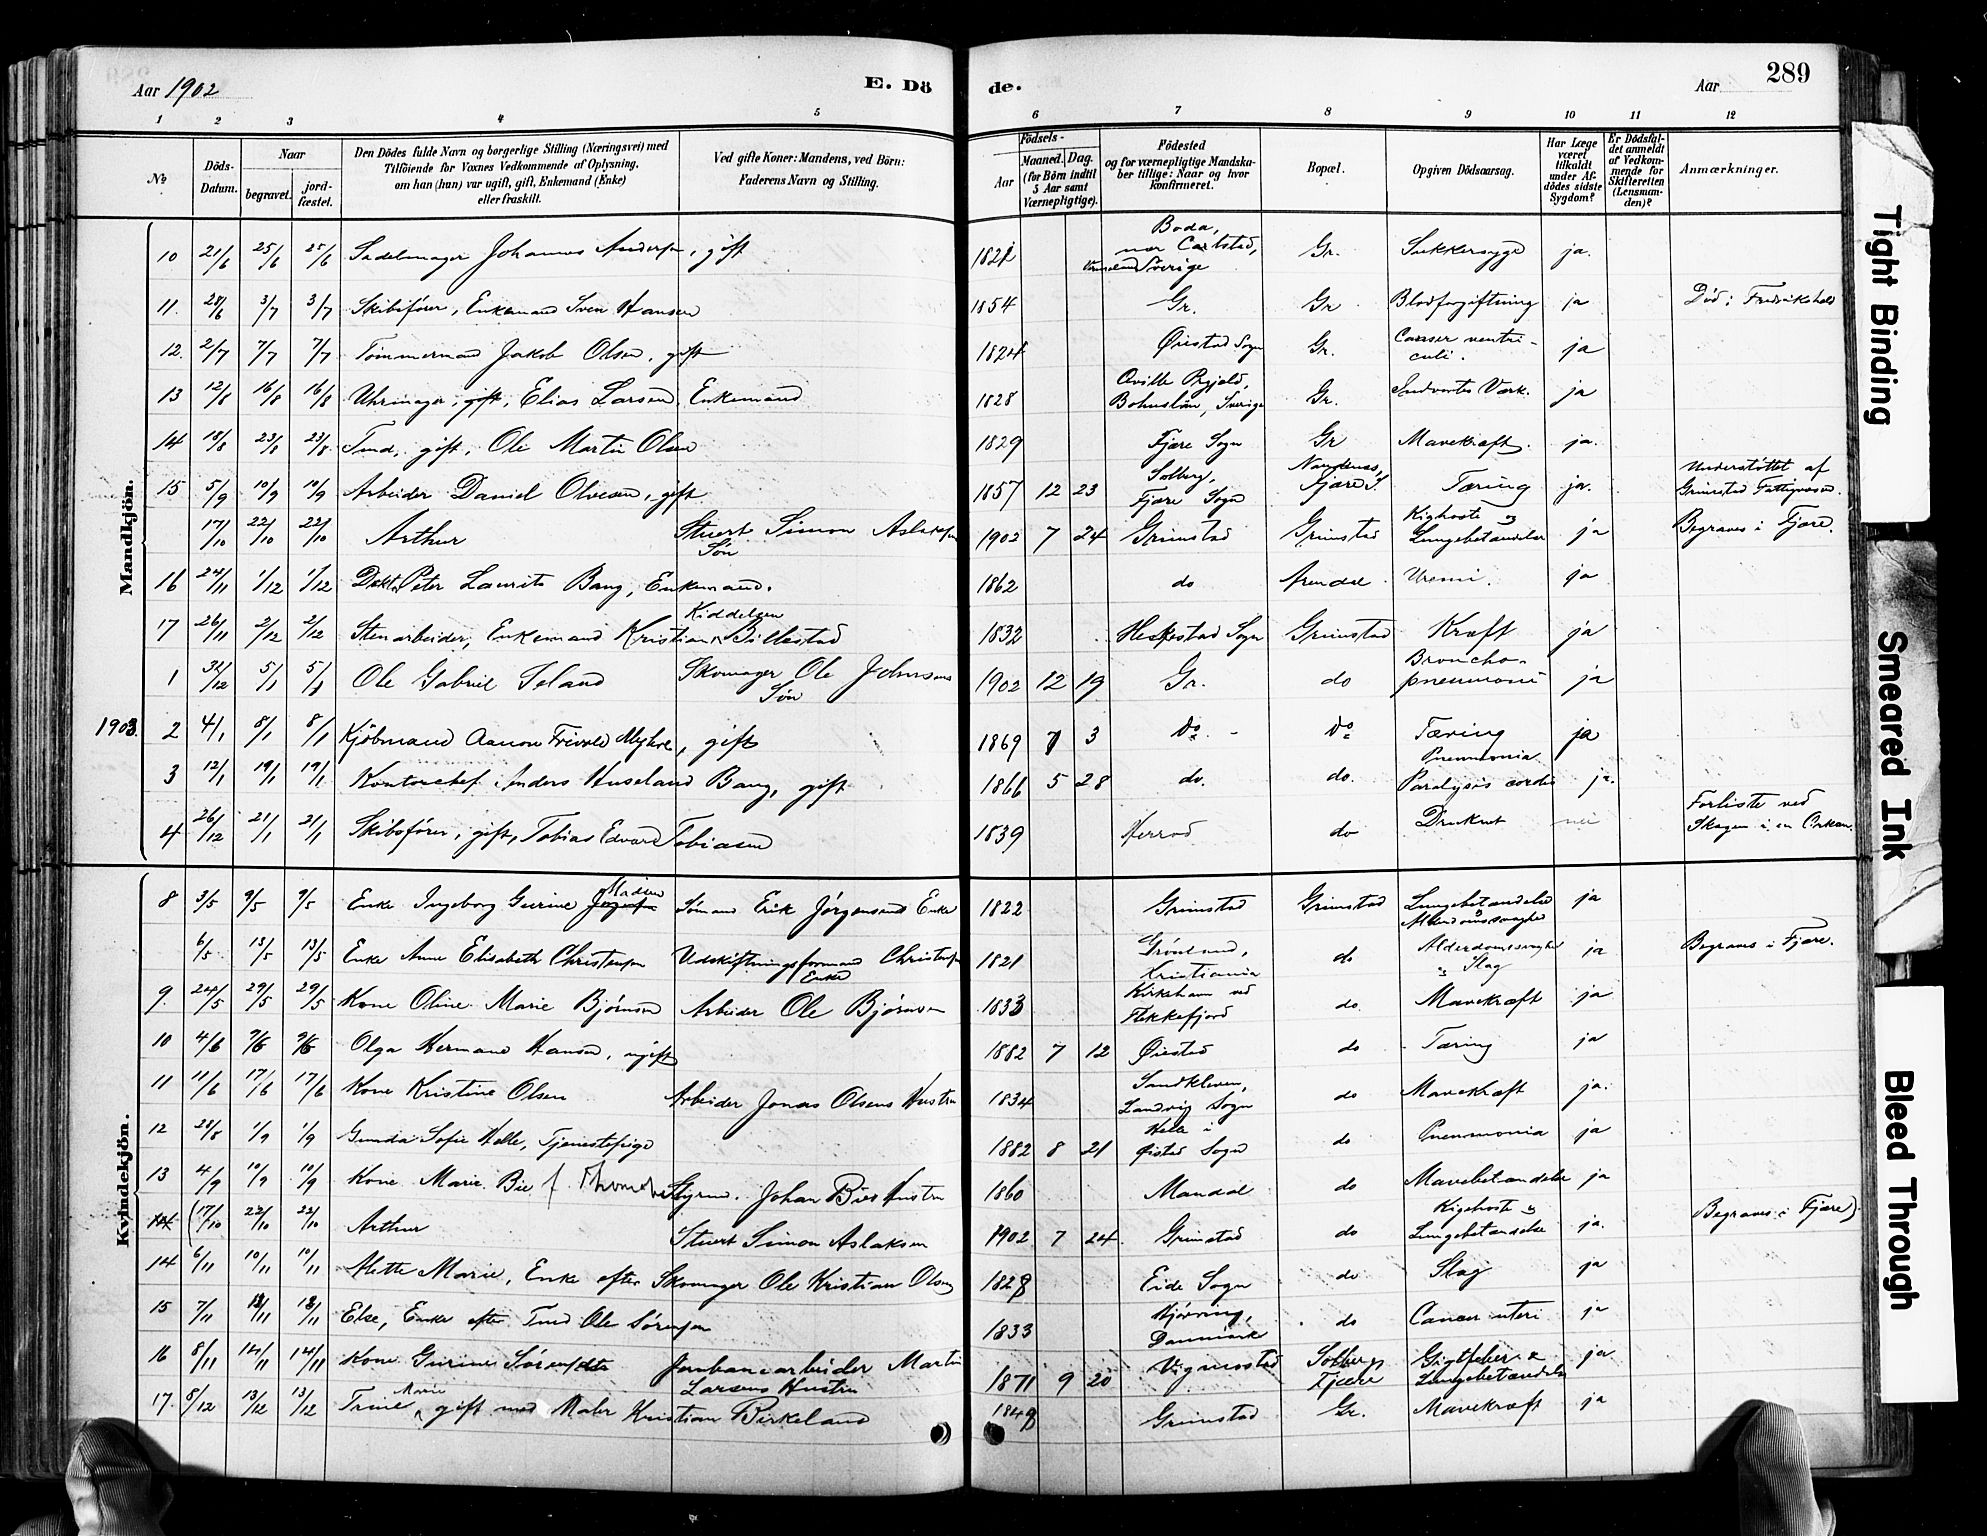 Aar 1902
E. Dö
de.
Aar
289
1 2 3 4 5 6 7 8 9 10 11 12
No
Döds-Datum.
Naar
begravet.
jord-fæstet.
Den Dödes fulde Navn og borgerlige Stilling (Næringsvei) med
Tilföiende for Voxnes Vedkommende af Oplysning,
om han (hun) var ugift, gift, Enkemand (Enke)
eller fraskilt.
Ved gifte Koner: Mandens, ved Börn:
Faderens Navn og Stilling.
Födsels-
Aar
Maaned. Dag.
(for Börn indtil
5 Aar samt
Værnepligtige).
Födested
og for værnepligtige Mandska-
ber tillige: Naar og hvor
konfirmeret.
Bopæl.
Opgiven Dödsaarsag.
Har Læge
været
tilkaldt
under Af-
dödes sidste
Sygdom?
Er Dödsfal-
det anmeldt
af Vedkom-
mende for
Skifteretten
(Lensman-
den)?
Anmærkninger.
Mandkjön.
10 21/6 25/6 25/6 Sadelmager Johannes Andersen, gift 1821 Boda, nær Carlstad, Vermland Sverige Gr. Sukkersyge ja.
11. 28/6 3/7 3/7 Skibsfører, Enkemand Sven Hansen 1854 Gr. Gr Blodforgiftning ja Død i Fredrikshald
12. 2/7 7/7 7/7 Tømmermand Jakob Olsen, gift 1824 Øiestad Sogn Gr. Cancer ventri-culi. ja
13 12/8 16/8 16/8 Uhrmager, gift, Elias Larsen, Enkemand 1828 Qville Prgjeld, Bohuslän, Sverige Gr. Indvortes Værk. ja
14 18/8 23/8 23/8 Tmd, gift, Ole Martin Olsen 1829 Fjære Sogn Gr Mavekræft. ja.
15 5/9 10/9 10/9 Arbeider Daniel Olvesen, gift 1857 12 23 Solberg, Fjære Sogn Fjære S. Tæring ja. Understøttet af Grimstad Fattigvæsen.
17/10 22/10 22/10 Arthur Stuert Simon Aslaksen Søn 1902 7 24 Grimstad Grimstad Kighoste og Lungebetændelse ja Begraves i Fjære.
16 24/11 1/12 1/12 Doktor Peter Laurits Bang, Enkemand. 1862 do Arendal Uremi. ja
17 26/11 2/12 2/12 Stenarbeider, Enkemand Kristian Kiddelsen Sillestad 1832 Heskestad Sogn Grimstad Kræft ja
1 31/12 5/1 5/1 Ole Gabriel Seland Skomager Ole Johnsens Søn 1902 12 19 Gr. do Broncho-pneumoni ja
1903. 2 4/1 8/1 8/1 Kjöbmand Aanon Frivold Myhre, gift 1869 7 3 do. - do Tæring ja
3 12/1 19/1 19/1 Kontorchef Anders Huseland Bang, gift 1866 5 28 do. do. Pneumonia Paralysis cordis ja.
4 26/12 21/1 21/1 Skibsfører, gift, Tobias Edvard Tobiasen 1839 Herred do Druknet nei Forliste ved Skagen i en Orkan.
Kvindekjön.
8 3/5 9/5 9/5 Enke Ingeborg Gurine Madsen Sømand Erik Jørgensens Enke 1822 Grimstad Grimstad Lungebetændelse & Alderdomssvaghed ja
6/5 13/5 13/5 Enke Anne Elisabeth Christensen Udskiftningsformand Christensens Enke 1821 Grönland, Kristiania do Alderdomssvaghed og Slag ja Begraves i Fjære.
9. 24/5 29/5 29/5 Kone Oline Marie Bjørnsen Arbeider Ole Bjørnsen 1833 Kirkehavn ved Flekkefjord do. Mavekræft ja
10 4/6 9/6 9/6 Olga Hermana Hansen, ugift 1882 7 12 Øiestad do Tæring ja
11 11/6 17/6 17/6 Kone Kristine Olsen Arbeider Jonas Olsens Hustru 1834 Sandkleven, Landvig Sogn do Mavekræft ja.
12 28/8 1/9 1/9 Gunda Sofie Helle, Tjenestepige 1882 8 21 Helle i Øistad Sogn do Pneumonia ja
13 4/9 10/9 10/9 Kone Marie Bie f. Styrmd. Johan Bies Hustru 1860 Mandal do Mavebetændelse ja
14 (17/10 22/10 22/10 Arthur Stuert Simon Aslaksen 1902 7 24 Grimstad do Kighoste og Lungebetændelse ja. Begraves i Fjære)
14 6/11 10/11 10/11 Mette Marie, Enke efter Skomager Ole Kristian Olsen 1828 Eide Sogn do Slag ja
15 7/11 13/11 13/11 Else, Enke efter Tmd Ole Sørensen 1833 Hjørring, Danmark do Cancer uteri ja
16 8/11 14/11 14/11 Kone Gurine Sørensdtr Jernbanearbeider Martin Larsens Hustru 1871 9 20 Vigmostad Solberg, Fjære Gigtfeber & Lungebetændelse ja
17. 8/12 13/12 13/12 Trine Marie, gift med Maler Kristian Birkeland 1848 Grimstad Gr. Mavekræft ja
Tight Binding
Smeared Ink
Bleed Through